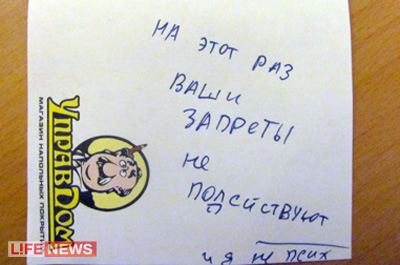 НА ЭТОТ РАЗ
ВАШИ
ЗАПРЕТЫ
НЕ
ПОДЕЙСТВУЮТ
И Я НЕ ПСИХ
УПРАВДОМ
МАГАЗИН НАПОЛЬНЫХ ПОКРЫТИ
L!FENEWS